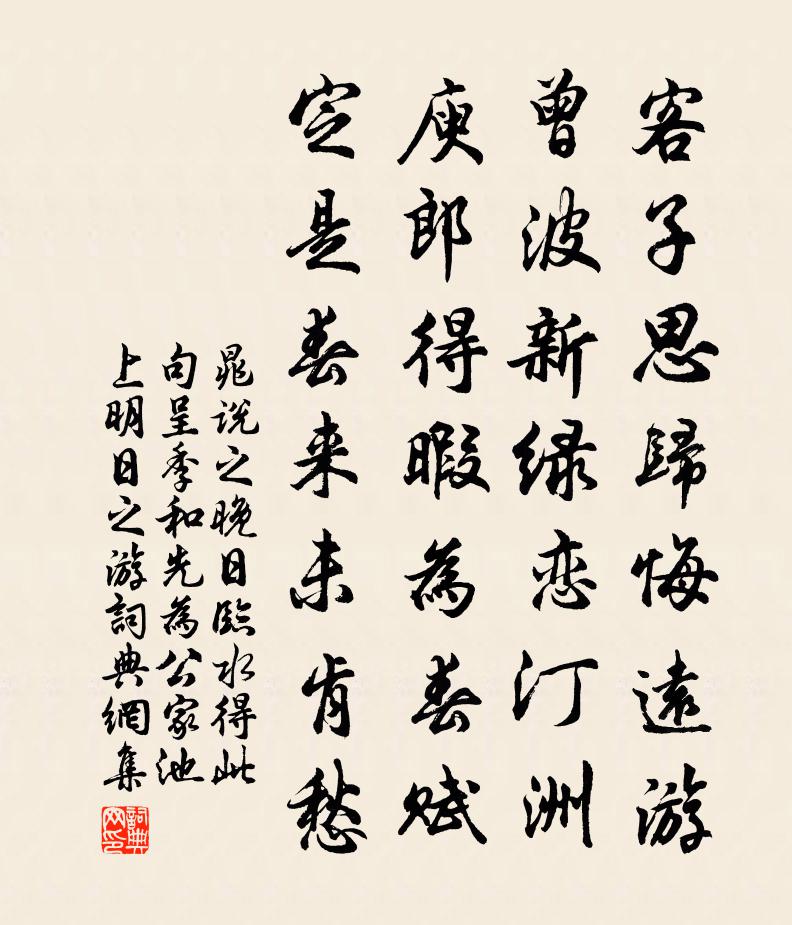 客子思歸悔遠游
曾波新緑恋汀洲
庾郎得暇為春賦
定是春来未肯愁
晁説之晚日臨水得此
句呈季和先為公家池
上明日之游詞典網集
詞典
网印